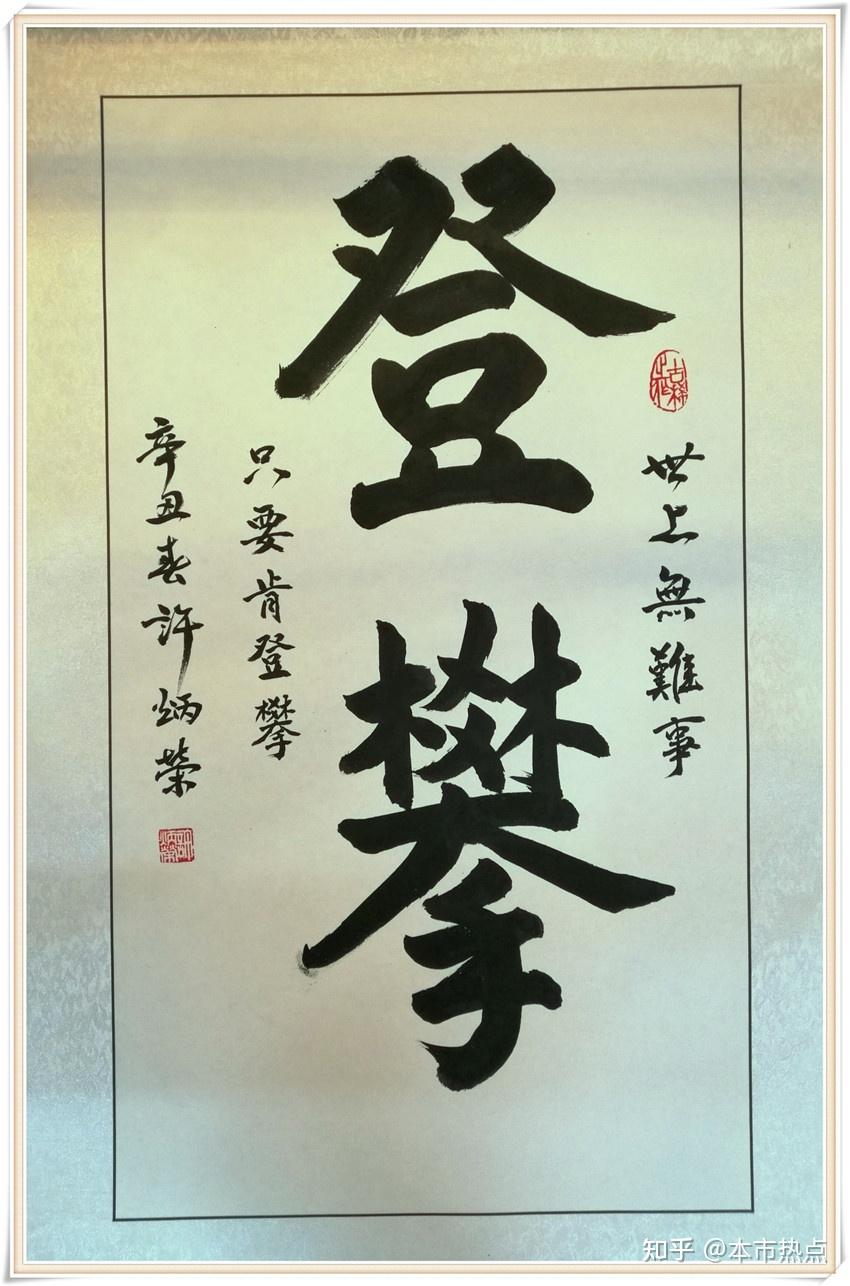 登攀
世上無難事
只要肯登攀
辛丑春許炳榮
知乎 @本市热点